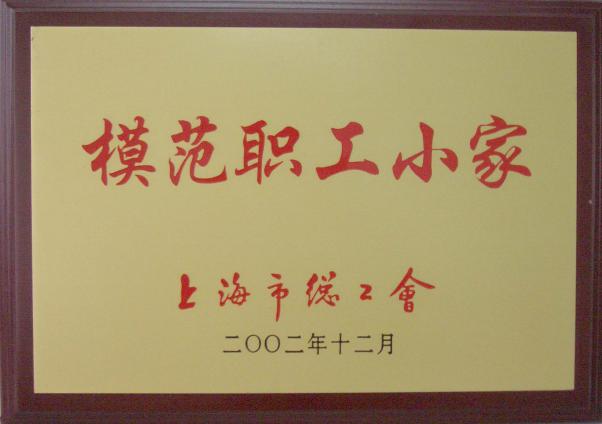 模范职工小家
上海市总工會
二〇〇二年十二月